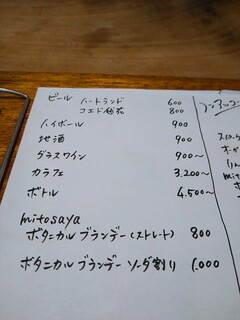 ビール ハートランド 600
コエド伽羅 800
ハイボール 900
地酒 900
グラスワイン 900〜
カラフェ 3,200〜
ボトル 4,500〜
mitosaya
ボタニカルブランデー(ストレート) 800
ボタニカルブランデーソーダ割り 1,000